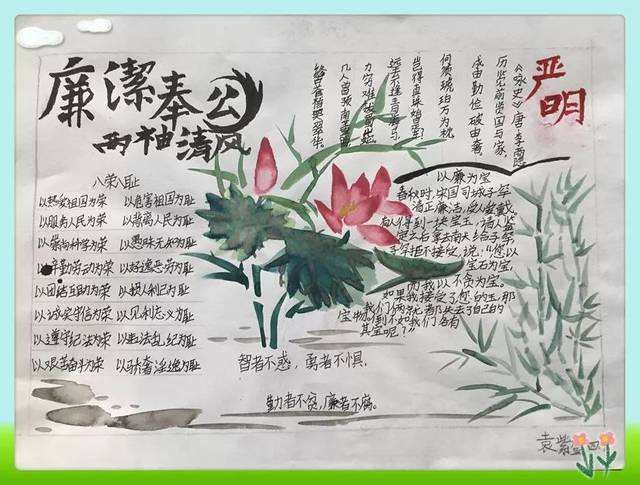 廉潔奉公
两袖清风
严明
《咏史》唐·李商隐
历览前贤国与家,
成由勤俭破由奢。
何须琥珀方为枕,
岂得真珠始是车。
远去不逢青海马,
力穷难拔蜀山蛇。
几人曾预南薰曲,
终古苍梧哭翠华。
八荣八耻
以热爱祖国为荣 以危害祖国为耻
以服务人民为荣 以背离人民为耻
以崇尚科学为荣 以愚昧无知为耻
以辛勤劳动为荣 以好逸恶劳为耻
以团结互助为荣 以损人利己为耻
以诚实守信为荣 以见利忘义为耻
以遵守纪法为荣 以违法乱纪为耻
以艰苦奋斗为荣 以骄奢淫逸为耻
以廉为宝
春秋时,宋国司城子罕
清正廉洁,受人爱戴。
有人得到一块宝玉,请人鉴
定后拿去献给子罕,
子罕拒不接受,说:“您以
宝石为宝,
而我以不贪为宝。
如果我接受了您的玉,那
我们俩就都失去了自己的
宝物。倒不如我们各有
其宝呢?”
智者不惑,勇者不惧,
勤者不贫,廉者不腐。
袁紫
四